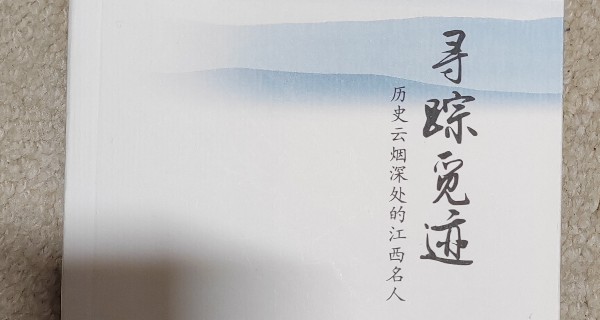 寻踪觅迹
历史云烟深处的江西名人